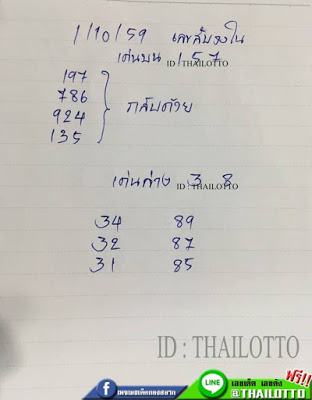 1/10/59 เลขลับวงใน
เด่นบน 157
ID : THAILOTTO
197
786
924
135
กลับด้วย
เด่นล่าง 3 8
ID : THAILOTTO
34 89
32 87
31 85
ID : THAILOTTO
LINE
เลขเด็ด เลขดัง ฟรี!!
@THAILOTTO